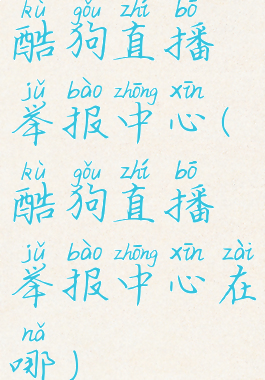 kù gǒu zhí bō
酷狗直播
jǔ bào zhōng xīn
举报中心(
kù gǒu zhí bō
酷狗直播
jǔ bào zhōng xīn zài
举报中心在
nǎ
哪)